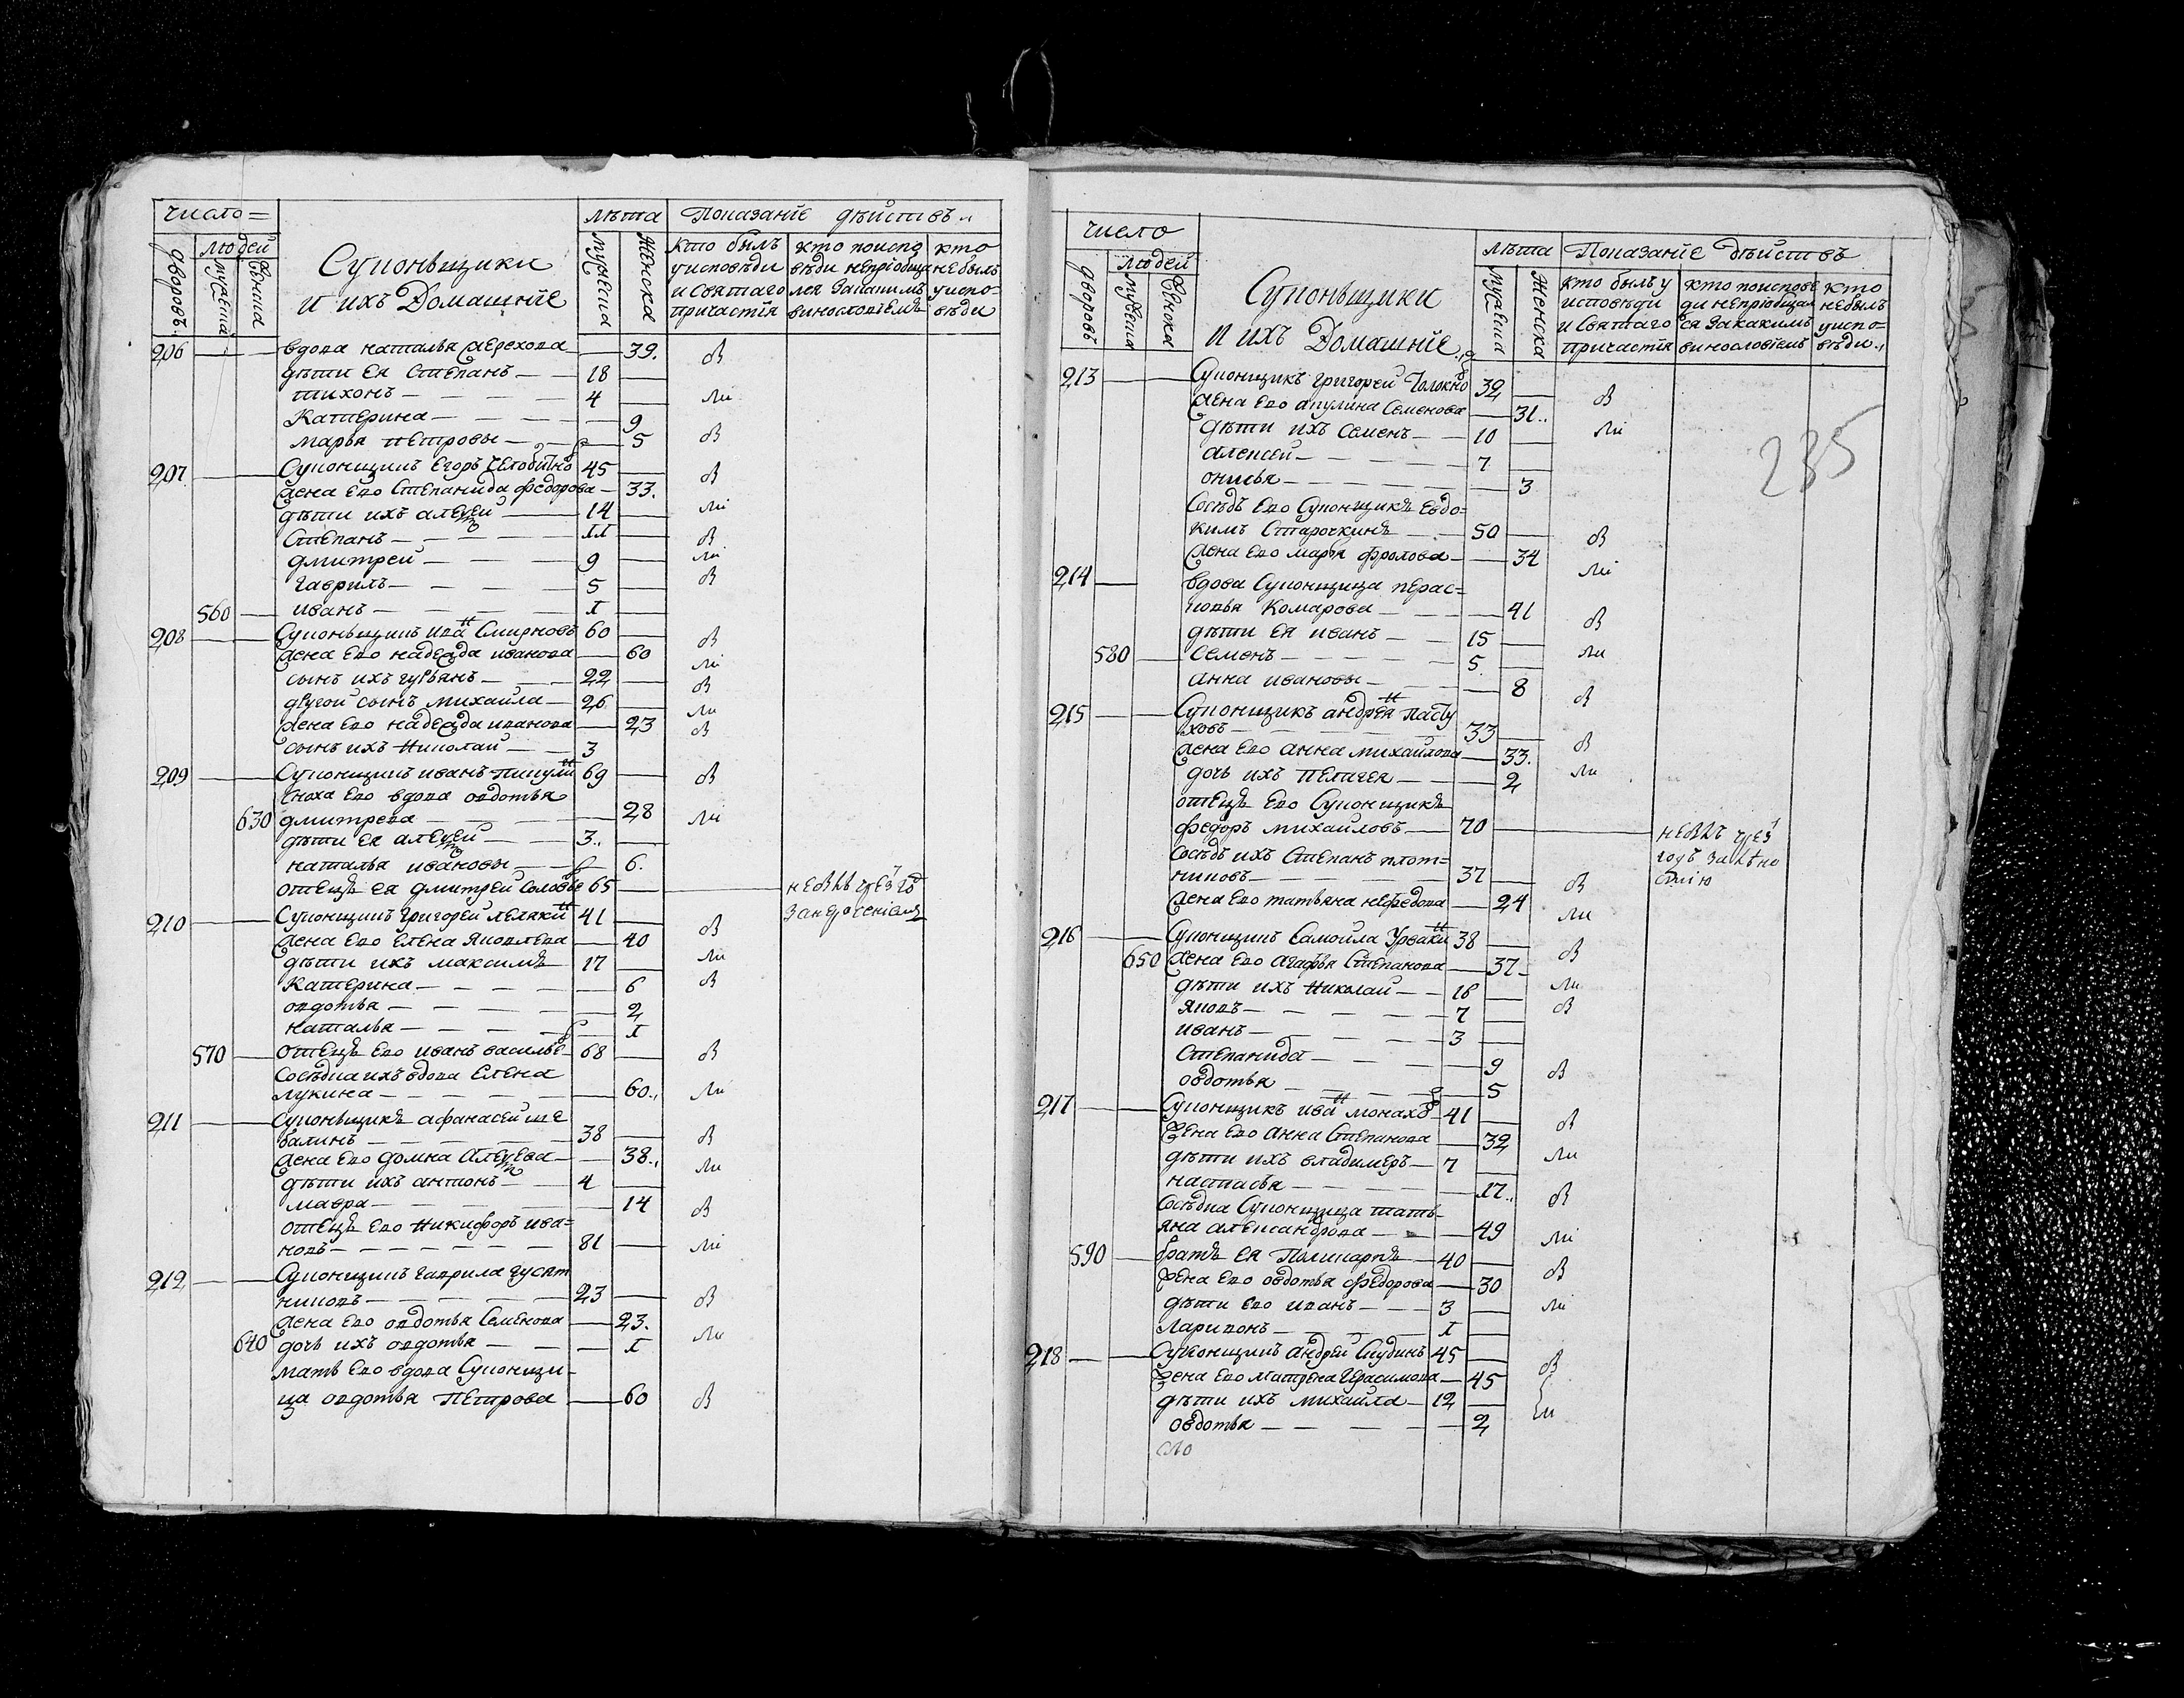 число
Супонъщики
и ихъ Домашние
лѣта
Показание дѣиствъ
дворовъ
людей
мужеска
женска
мужеска
женска
кто былъ
у исповѣди
и святаго
причастія
кто поиспо
вѣди непріобща
лся закакимъ
винословіемъ
кто
небылъ
уиспо-
вѣди
206 вдова наталья 39
дѣти ея степанъ 18
тихонъ 4
Катерина 9
марья петровы 5
207 Супонщикъ егоръ Челобитно 45
жена его степанида федорова 33
дѣти ихъ алеѯей 14
степанъ 11
дмитрей 9
гаврилъ 5
560 иванъ 1
208 Супонъщикъ иванъ Смирновъ 60
жена его надежда иванова 60
сынъ ихъ гурьянъ 22
другой сынъ михайла 26
жена его надежда иванова 23
сынъ ихъ николай 3
209 Супонщикъ иванъ пикулин 69
сноха его вдова овдотья
630 дмитрева 28
дѣти ея алеѯей 3
наталья ивановы 6
отецъ ея дмитрей Соловье 65
210 Супонщикъ григорей 41
жена его елена яковлева 40
дѣти ихъ максимъ 17
Катерина 6
овдотья 2
наталья 1
570 отецъ его иванъ василье 68
Сосѣдка ихъ вдова елена
лукина 60
211 Супонъщикъ афанасей ше
балинъ 38
жена его домна алеѯева 38
дѣти ихъ антонъ 4
мавра 14
отецъ его никифоръ ива-
новъ 81
212 Супонщикъ гаврила гусят
никовъ 23
жена его овдотья Семенова 23
640 дочь ихъ овдотья 1
мать его вдова Супонщи-
ца овдотья Петрова 60
число
Супонъщики
и ихъ Домашние
лѣта
Показание дѣиствъ
дворовъ
людей
мужеска
женска
мужеска
женска
кто былъ у
исповѣди
и святаго
причастія
кто поисповѣ
ди непріобщал
ся закакимъ
винословіемъ
кто
небылъ
уиспо-
вѣди
235
213 Супонщикъ григорей Толокно 32
жена его акулина Семенова 31
дѣти ихъ Семенъ 10
алексей 7
онисья 3
Сосѣдъ его Супонщикъ евдо-
кимъ Старочкинъ 50
жена его марья фролова 34
214 вдова Супонщица перас-
ковья Комарова 41
дѣти ея иванъ 15
580 Семенъ 5
анна ивановы 8
215 Супонщикъ андреян пасту
ховъ 33
жена его анна михайлова 33
дочь ихъ пелагея 2
отецъ его Супонщикъ
федоръ михайловъ 70
Сосѣдъ ихъ Степанъ плот-
никовъ 37
жена его татьяна нефедова 24
216 Супонщикъ Самойла Урвакин 38
650 жена его агафья Степанова 37
дѣти ихъ николай 16
яковъ 7
иванъ 3
Степанида 9
овдотья 5
217 Супонщикъ иван монахо 41
жена его анна Степанова 32
дѣти ихъ владимеръ 7
настасья 17
Сосѣдка Супонщица татья-
яна александрова 49
590 братъ ея Поликарпъ 40
жена его овдотья федорова 30
дѣти его иванъ 3
Ларивонъ 1
218 Супонщикъ андрей Студинъ 45
жена его матрена герасимова 45
дѣти ихъ михайла 12
овдотья 2